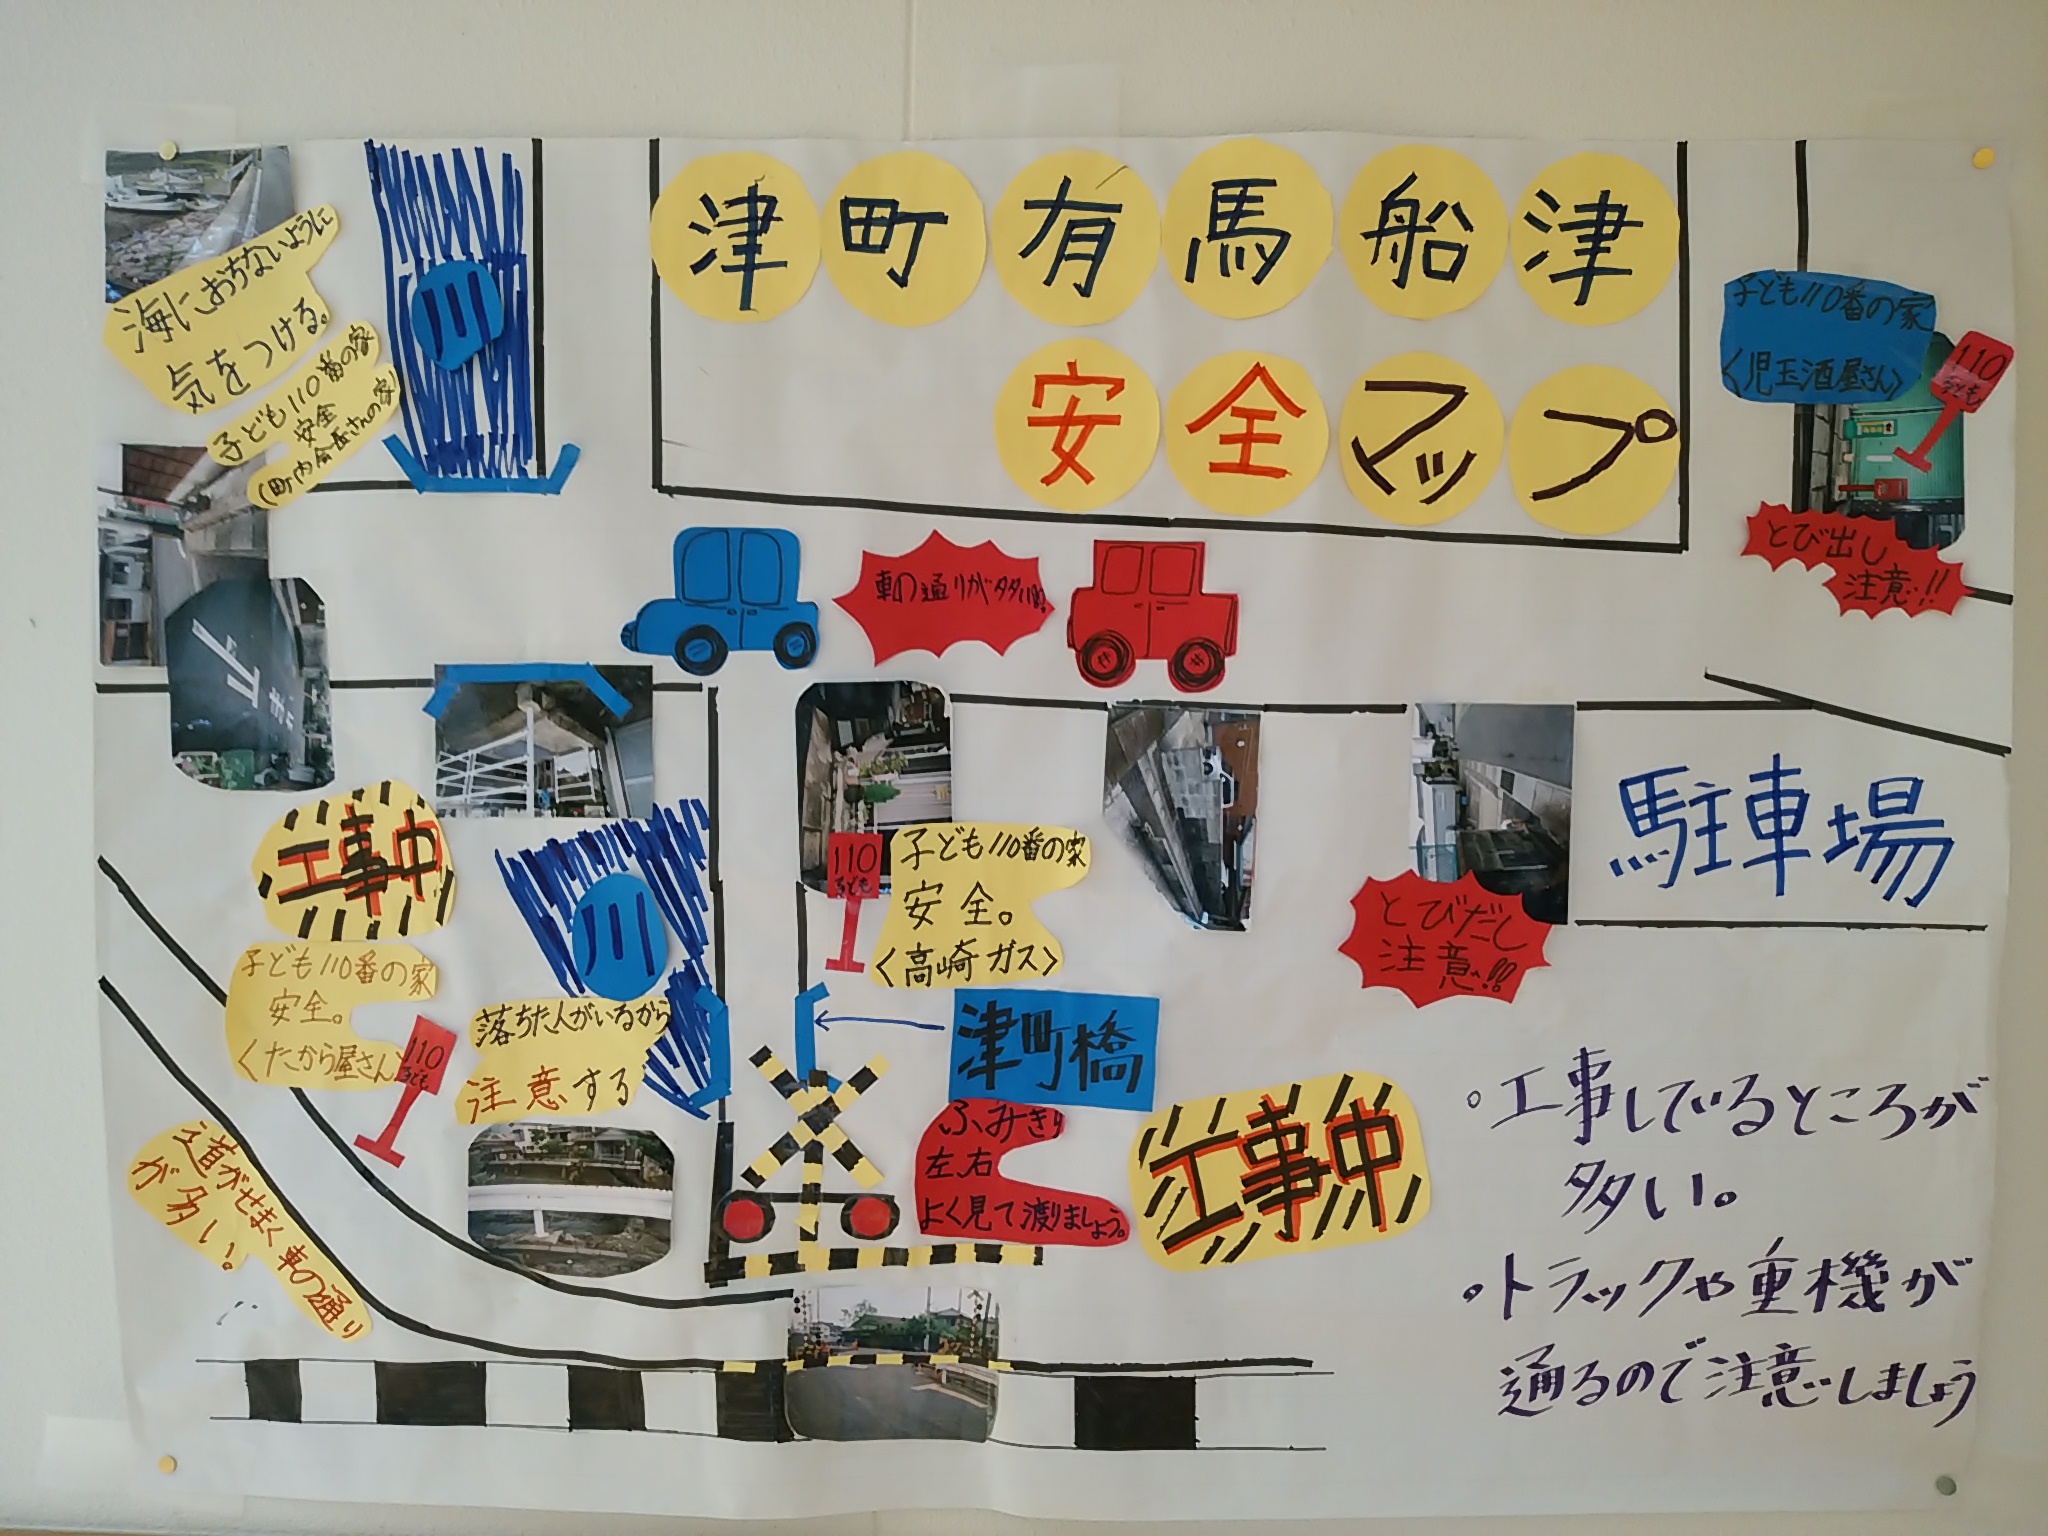 津町有馬船津
安全マップ
海におちないように
気をつける。
子ども110番の家
安全
(町内会長さんの家)
川
子ども110番の家
〈児玉酒屋さん〉
110
子ども
とび出し
注意!!
車の通りが多い
止
工事中
川
110
子ども
子ども110番の家
安全。
〈高崎ガス〉
とびだし
注意!!
駐車場
子ども110番の家
安全。
〈たから屋さん〉
110
子ども
落ちた人がいるから
注意する
津町橋
ふみきり
左右
よく見て渡りましょう。
工事中
道がせまく車の通り
が多い。
・工事しているところが
多い。
・トラックや重機が
通るので注意しましょう